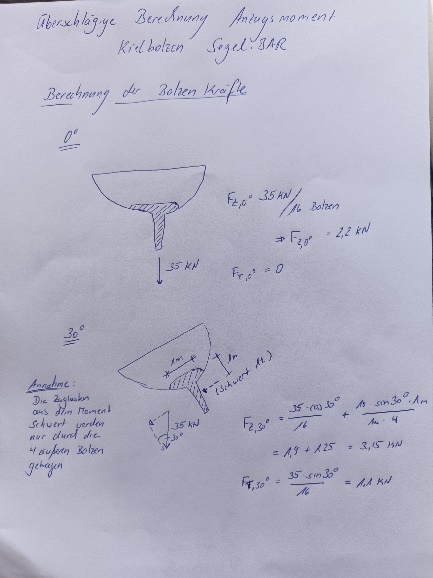 Überschlägige Berechnung Anzugsmoment
Kielbolzen Segel:BAR
Berechnung der Bolzen Kräfte
0°
F_Z,0° 35 KN / 16 Bolzen
⇒ F_Z,0° = 2,2 KN
35 KN
F_T,0° = 0
30°
1m
1m
(Schwert 1t.)
Annahme:
Die Zuglasten
aus dem Moment
Schwert werden
nur durch die
4 äußern Bolzen
getragen
35 KN
30°
F_Z,30° = 35 · cos 30° / 16 + 10 · sin 30° · 1m / 1m · 4
= 1,9 + 1,25 = 3,15 KN
F_T,30° = 35 · sin 30° / 16 = 1,1 KN